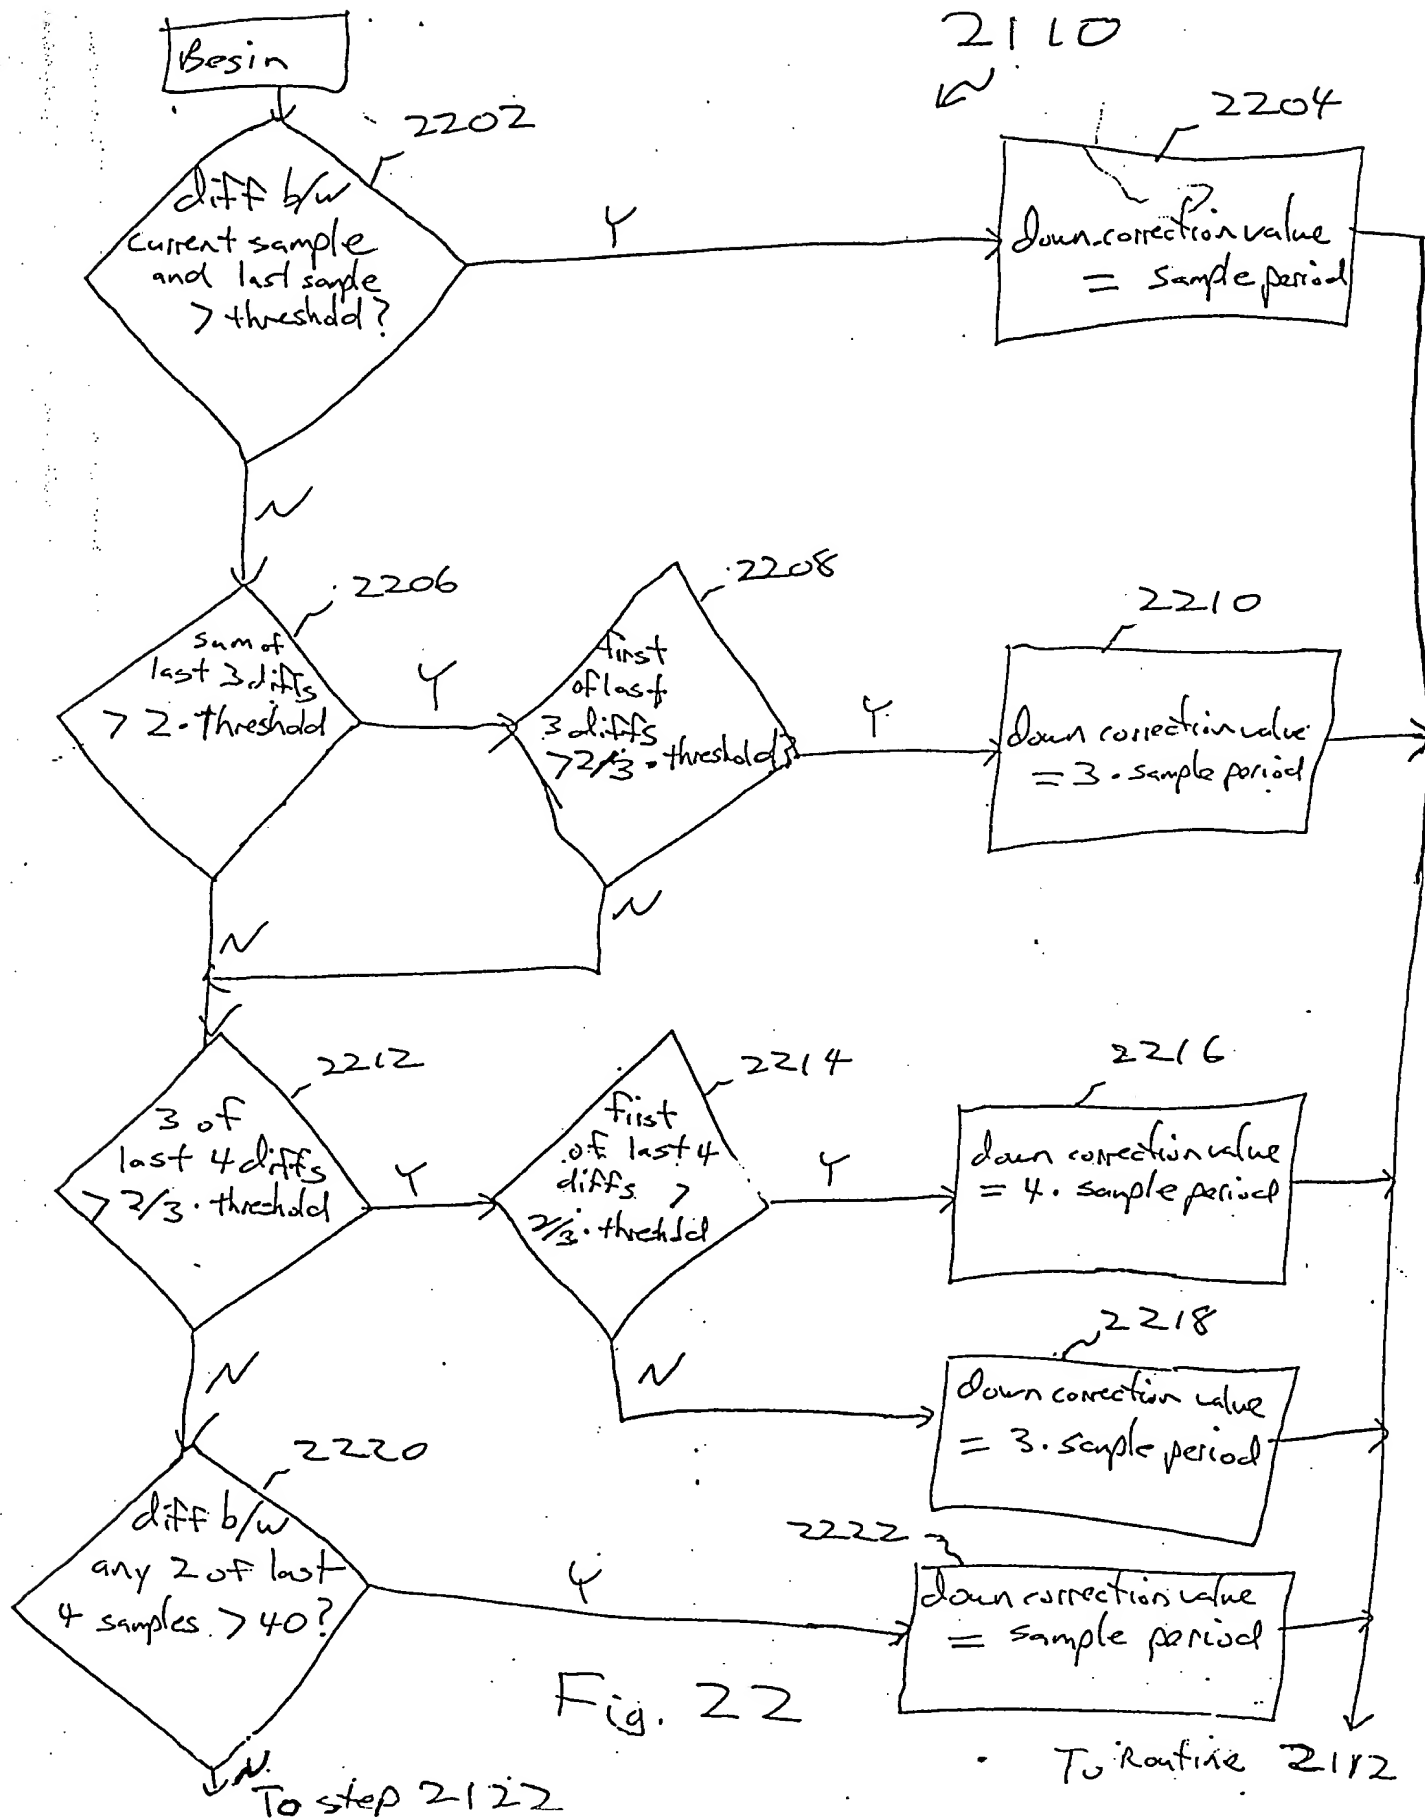 2110
Begin
2202
2204
diff b/w
current sample
and last sample
> threshold?
Y
down correction value
= sample period
N
2206
2208
2210
sum of
last 3 diffs
> 2 · threshold
Y
first
of last
3 diffs
> 2/3 · threshold?
Y
down correction value
= 3 · sample period
N
N
2212
2214
2216
3 of
last 4 diffs
> 2/3 · threshold
Y
first
of last 4
diffs >
2/3 · threshold
Y
down correction value
= 4 · sample period
N
N
2218
down correction value
= 3 · sample period
2220
diff b/w
any 2 of last
4 samples > 40?
Y
2222
down correction value
= sample period
Fig. 22
N
To step 2122
To Routine 2112